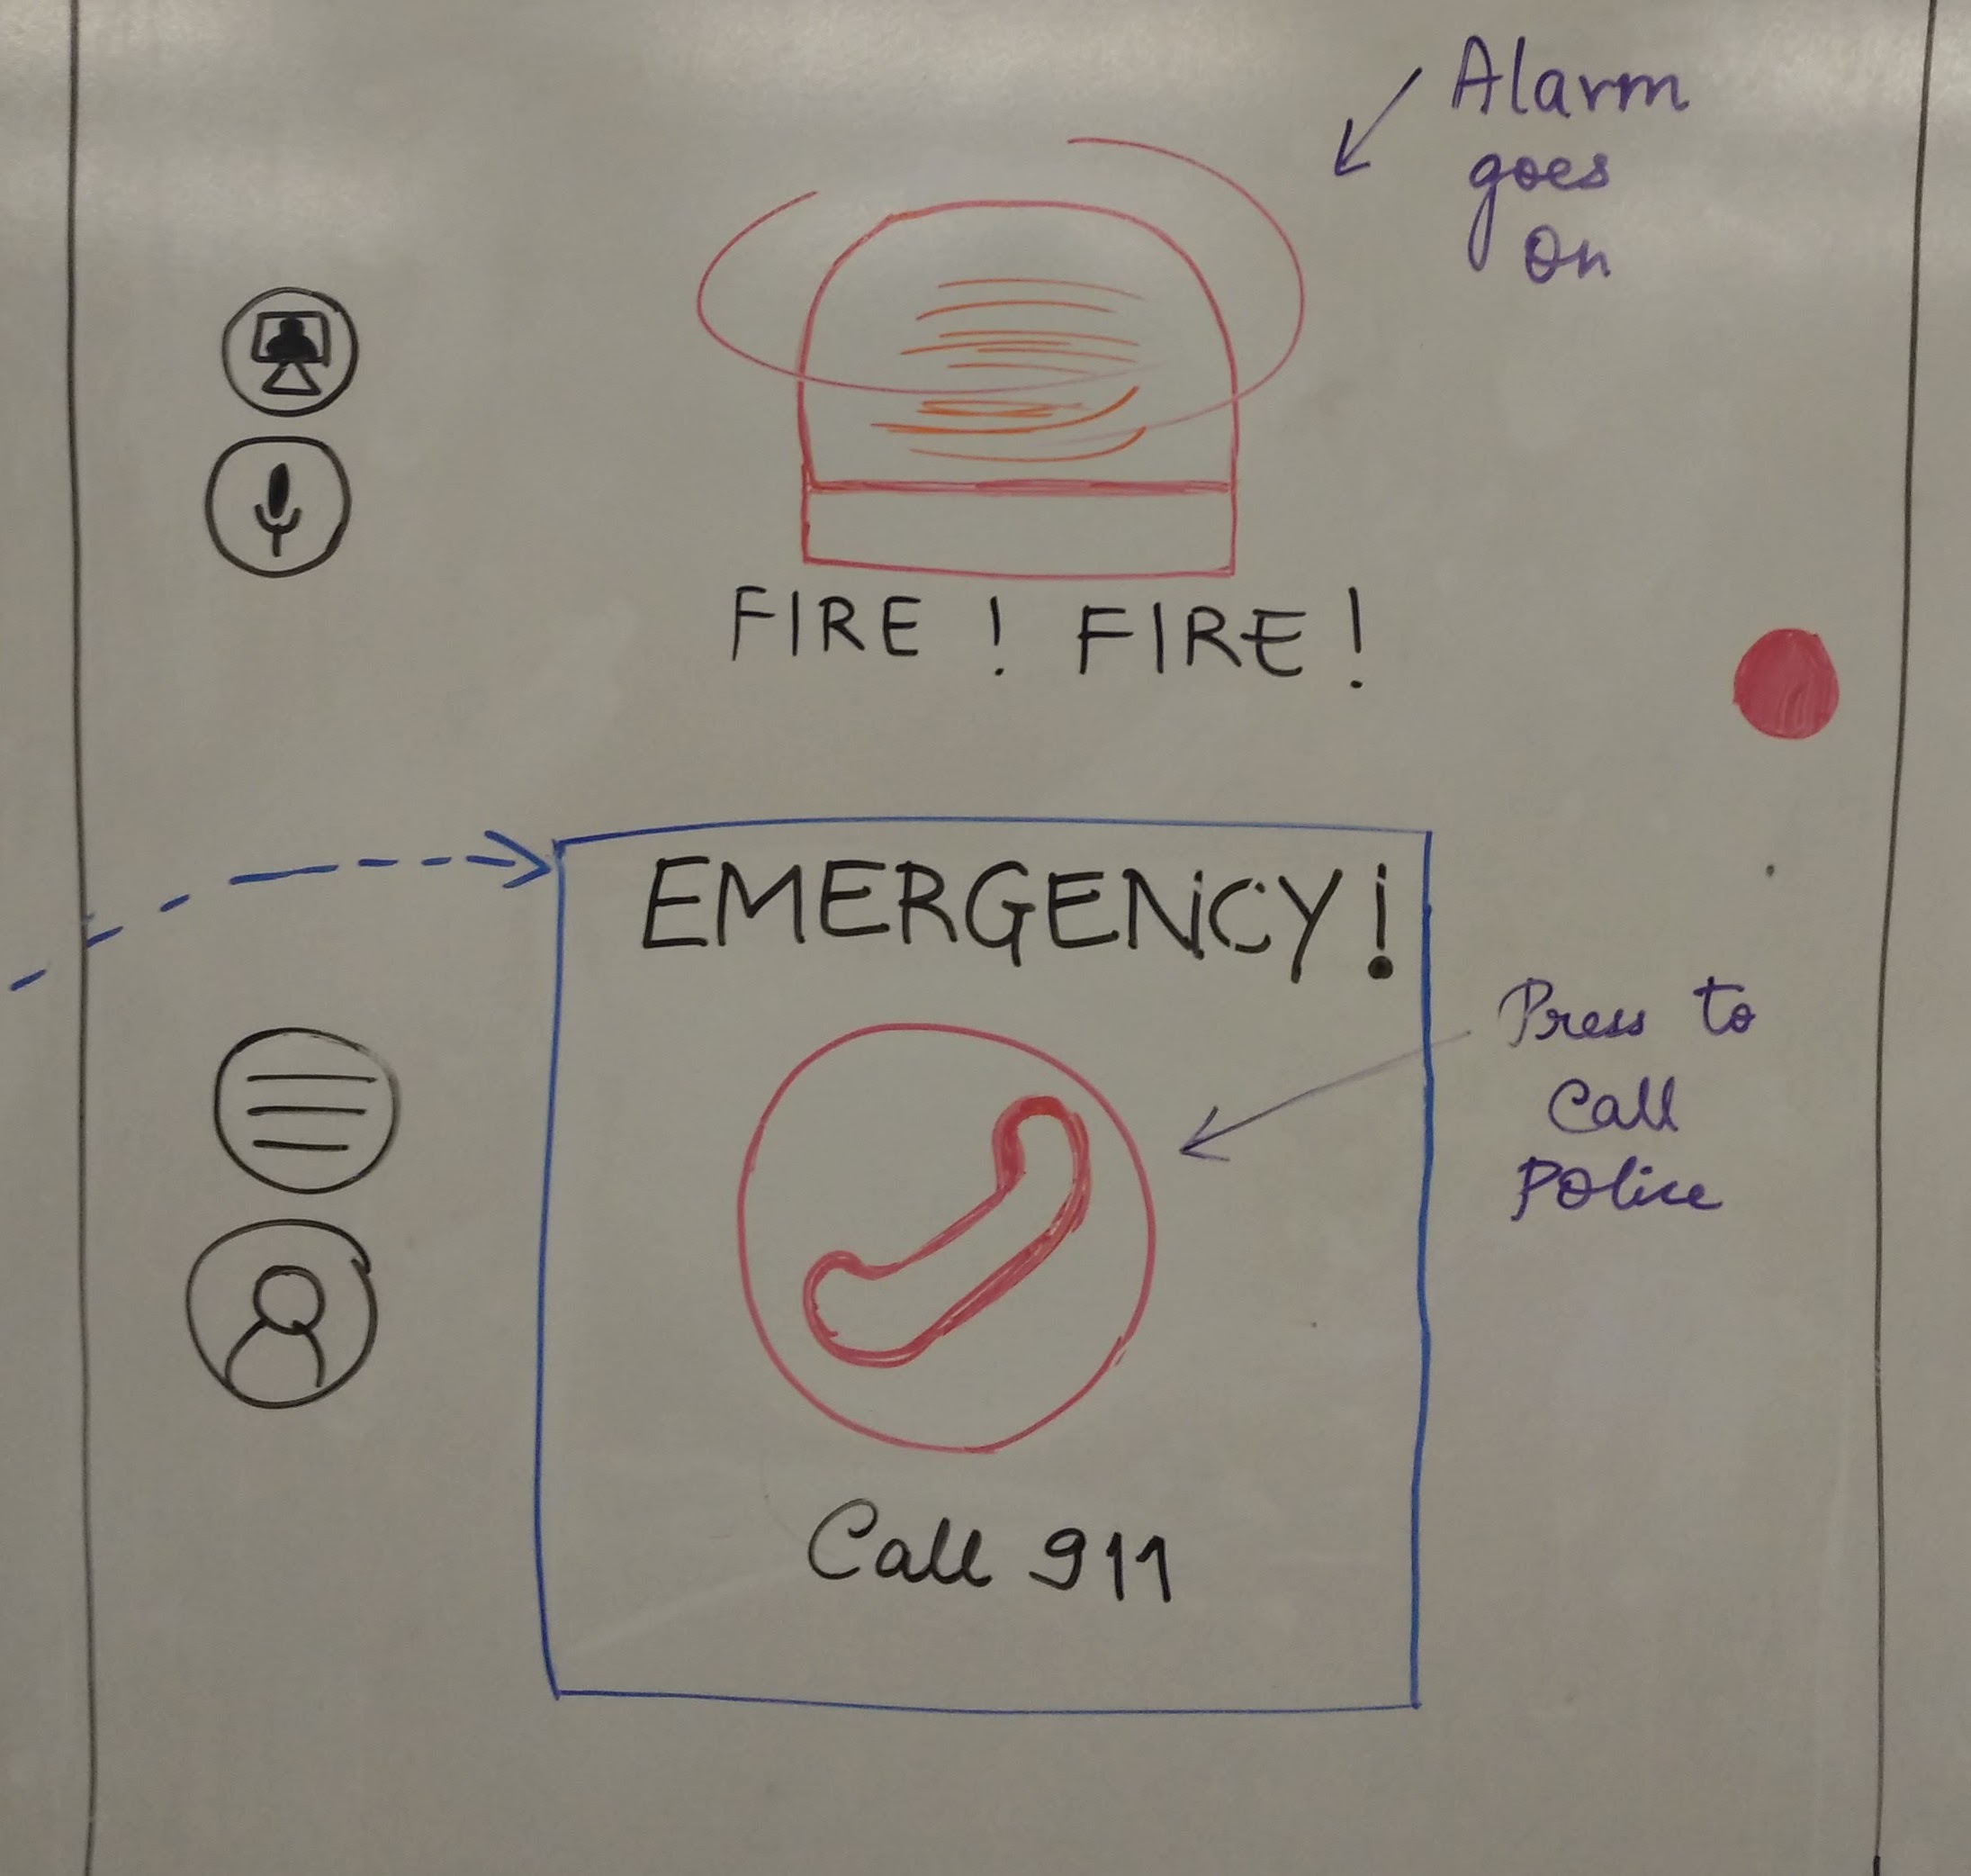 Alarm
goes
On
FIRE ! FIRE !
EMERGENCY !
Press to
Call
Police
Call 911